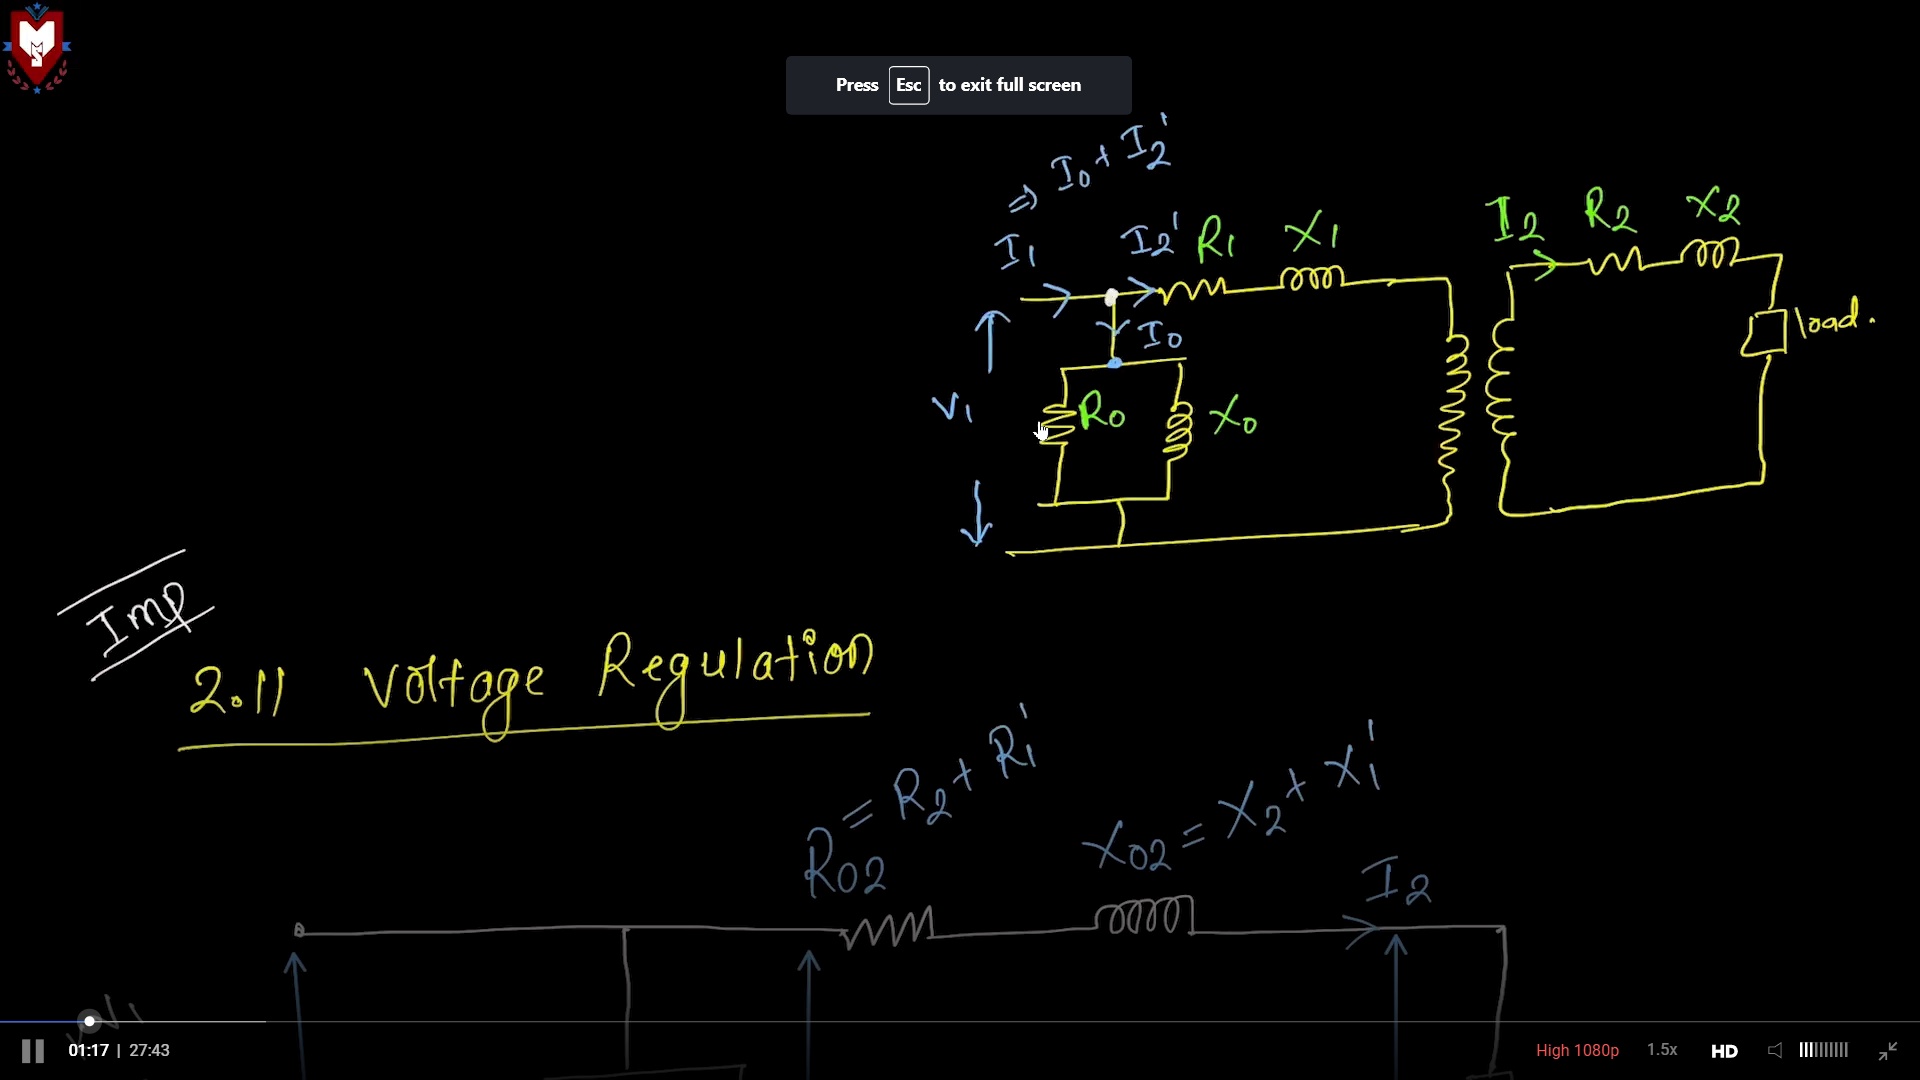 M
S
Press Esc to exit full screen
⇒ I0 + I2'
I1
I2' R1 X1
I2 R2 X2
I0
load.
V1
R0 X0
Imp
2.11 Voltage Regulation
R02 = R2 + R1'
X02 = X2 + X1'
I2
V1
01:17 | 27:43
High 1080p 1.5x HD